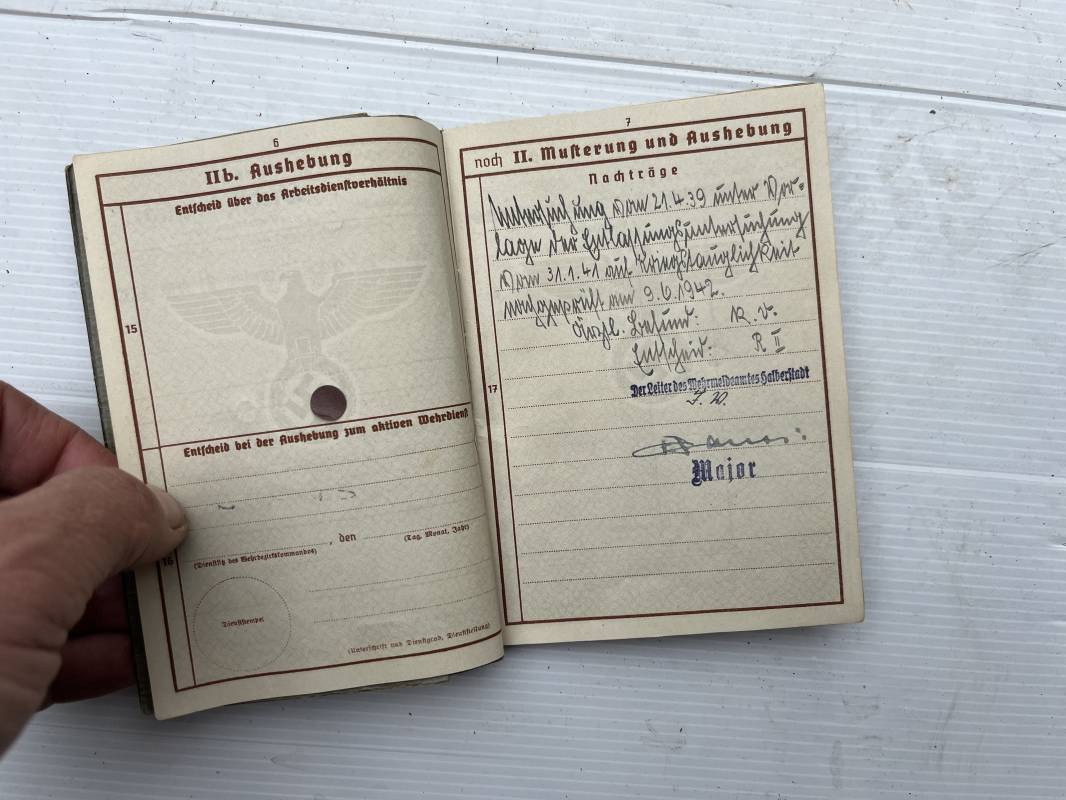 6
IIb. Aushebung
Entscheid über das Arbeitsdienstverhältnis
15
Entscheid bei der Aushebung zum aktiven Wehrdienst
, den
(Dienstsitz des Wehrbezirkskommandos)
(Tag, Monat, Jahr)
16
Dienststempel
(Unterschrift und Dienstgrad, Dienststellung)
7
noch II. Musterung und Aushebung
Nachträge
Untersuchung vom 21.4.39 unter Vor-
lage der Entlassungsuntersuchung
vom 31.1.41 auf Kriegstauglichkeit
nachgeprüft am 9.6.1942.
Ärztl. Befund: k.v.
Entscheid: R II
17
Der Leiter des Wehrmeldeamtes Halberstadt
J. V.
Major